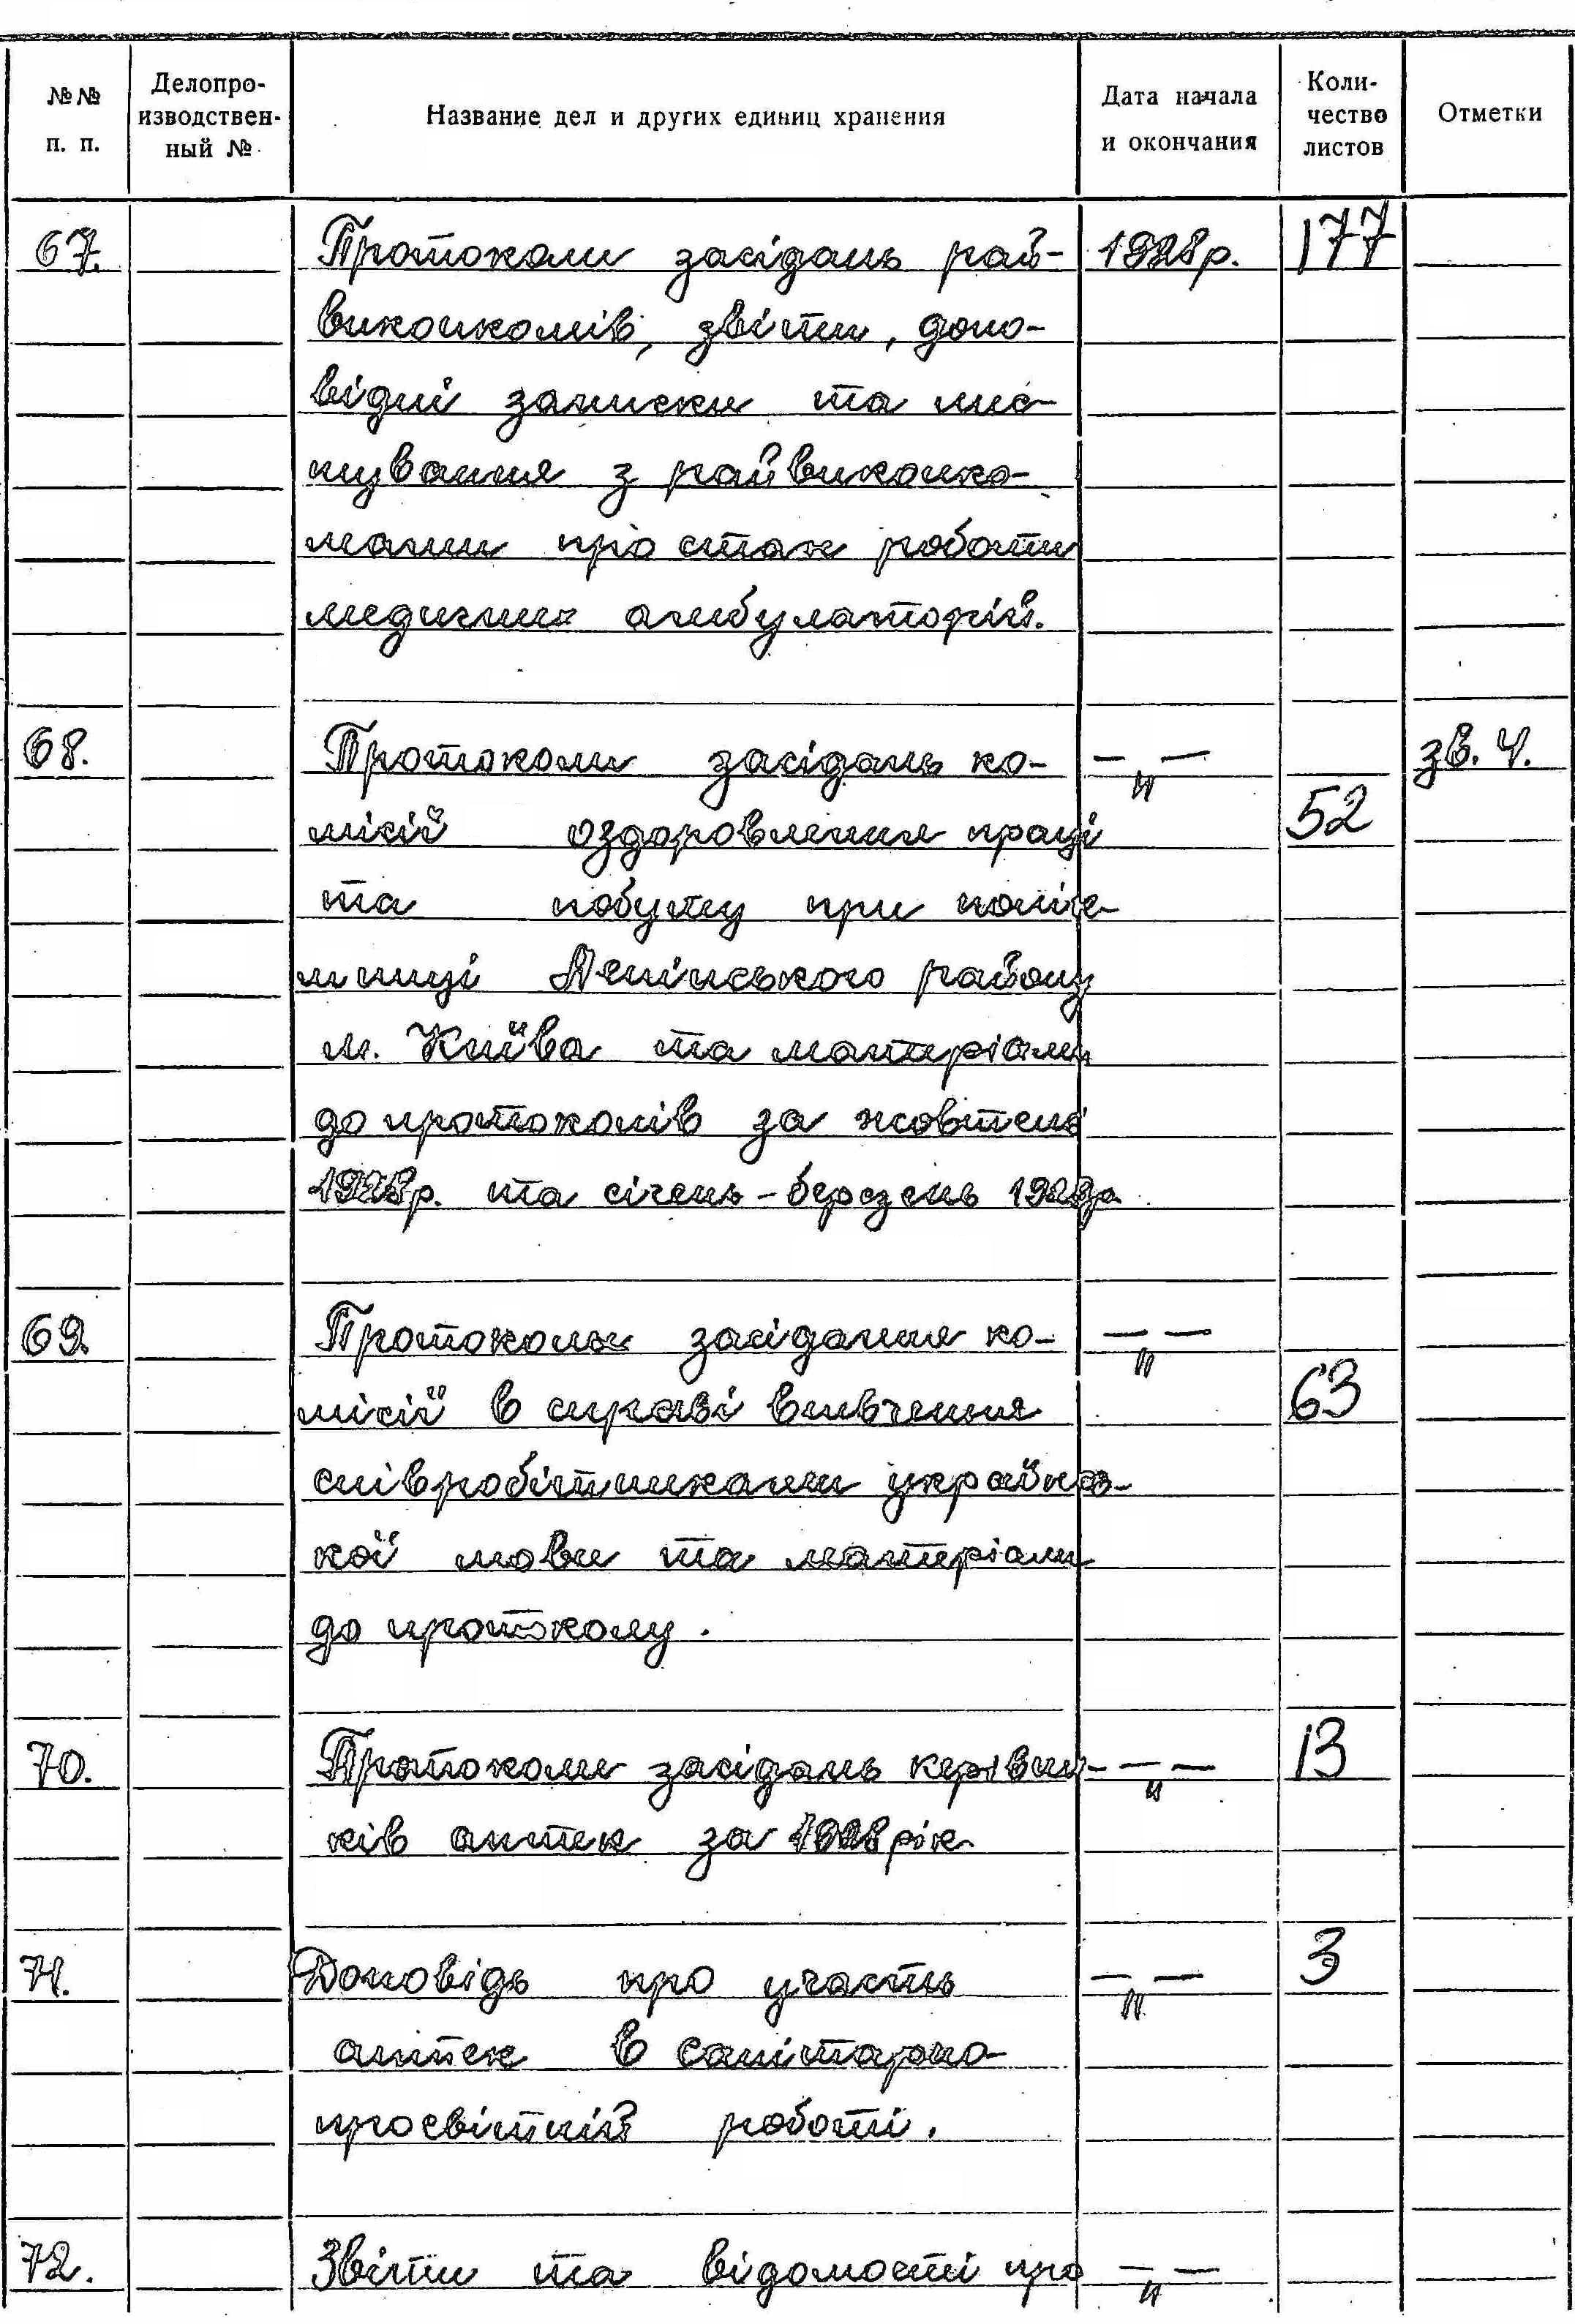 №№ п. п. Делопро-изводствен-ный № Название дел и других единиц хранения Дата начала и окончания Коли-чество листов Отметки
67. Протоколи засідань рай- 1928р. 177
виконкомів, звіти, допо-
відні записки та лис-
тування з райвиконко-
мами про стан роботи
медичних амбулаторій.
68. Протоколи засідань ко- — " — зв. ч.
місій оздоровлення праці 52
та побуту при полік-
лініці Ленінського району
м. Київа та матеріали
до протоколів за жовтень
та січень-березень
69. Протокольи засідання ко- — " —
місії в справі вивчення 63
співробітниками українсь-
кої мови та матеріали
до протоколу.
70. Протоколи засідань керівни- — " — 13
ків аптек за 1928 рік
71. Доповідь про участь — " — 3
аптек в санітарно-
просвітній роботі.
72. Звіти та відомості про — " —